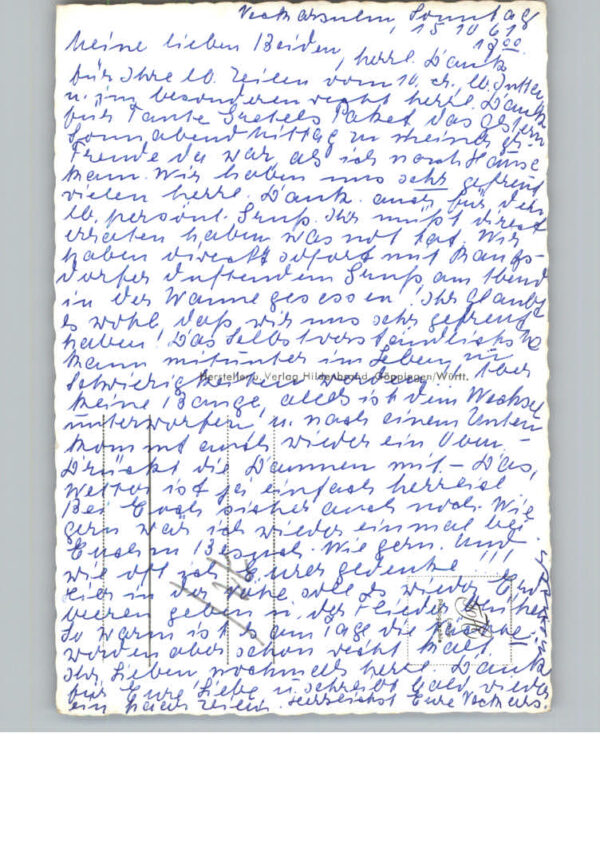 Neckarsulm, Sonntag
15.10.61
13.00
Meine lieben Beiden, herzl. Dank
für Ihre lb. Zeilen vom 10. cr., lb.
u. im besonderen recht herzl. Dank
für Tante Gretels Paket das gestern
Sonnabend Mittag zu meiner gr.
Freude da war, als ich nach Hause
kam. Wir haben uns sehr gefreut
vielen herzl. Dank auch für den
lb. persönl. Gruß. Ihr müßt direkt
erraten haben was not tat. Wir
haben direkt sofort mit
duftendem Gruß am Abend
in der Wanne gesessen! Ihr glaubt
es wohl, daß wir uns sehr gefreut
haben! Das Selbstverständlichste
kann mitunter im Leben zu
Schwierigkeiten werden, aber
Hersteller u. Verlag Hildenbrand, Göppingen/Württ.
keine Bange, alles ist dem Wechsel
unterworfen, u. nach einem Unten
kommt auch wieder ein Oben.-
Drückt die Daumen mit.- Das
Wetter ist ja einfach herrlich
Bei Euch sicher auch noch. Wie
gern wär ich wieder einmal bei
Euch zu Besuch. Wie gern. Und
wie oft ich Eurer gedenke!!!
Hier in der Nähe soll es wieder Erd
beeren geben u. der Flieder blühen
So warm ist es am Tage die Nächte
werden aber schon recht kalt.
Ihr Lieben nochmals herzl. Dank
für Eure Liebe u. schreibt bald wieder
ein paar Zeilen. Herzlichst Eure Neckars.